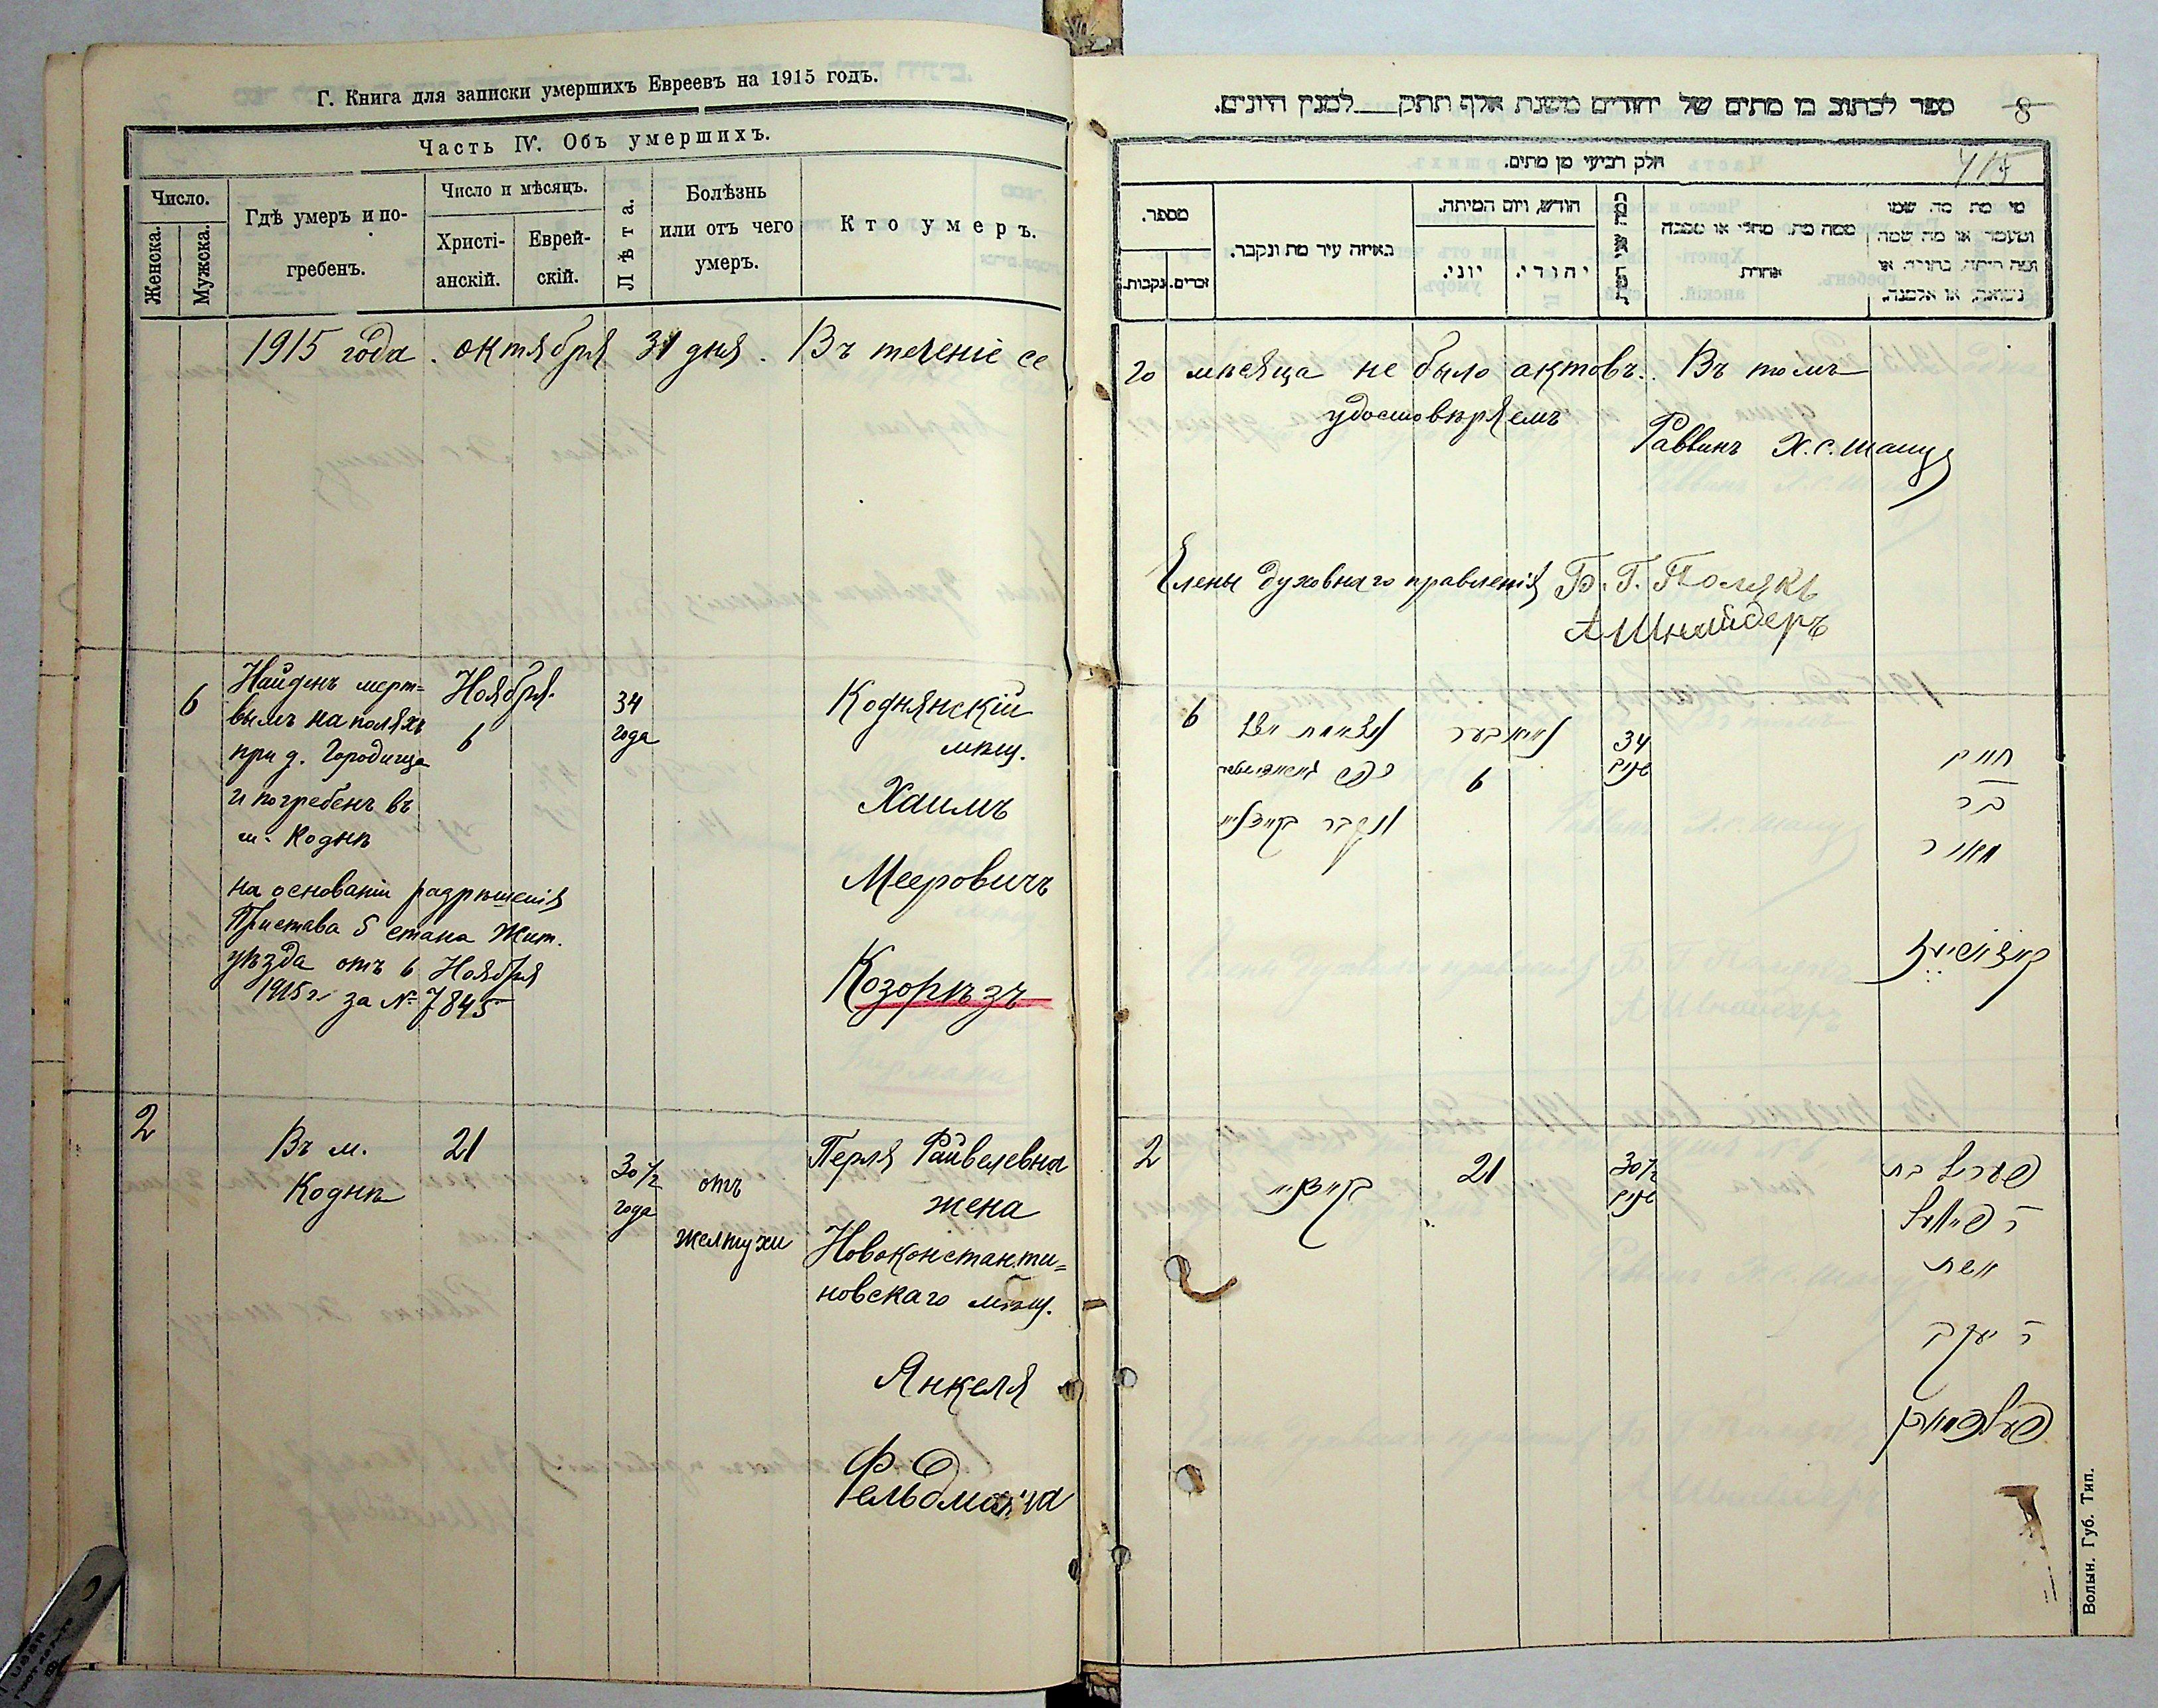 Г. Книга для записки умершихъ Евреевъ на 1915 годъ.
Часть IV. Объ умершихъ.
Число.
Женска.
Мужска.
Гдѣ умеръ и по-
гребенъ.
Число и мѣсяцъ.
Христі-
анскій.
Еврей-
скій.
Лѣта.
Болѣзнь
или отъ чего
умеръ.
Кто умеръ.
1915 года. октября 31 дня. Въ теченіе се
6
Найденъ мерт=
вымъ на поляхъ
при д. Городище
и погребенъ въ
м. Коднѣ
на основаніи разрѣшенія
Пристава 5 стана Жит.
уѣзда отъ 6 Ноября
1915 г. за № 7845
Ноября.
6
34
года
Коднянскій
мѣщ.
Хаимъ
Мееровичъ
Козорѣзъ
2
Въ м.
Коднѣ
21
30 1/2
года
отъ
желтухи
Перля Файвелевна
жена
Новоконстанти=
новскаго мѣщ.
Янкеля
Фельдмана
ספר לכתוב בו מתים של יהודים משנת אלף תתק___למנין היונים.
8
חלק רביעי מן מתים.
מספר.
זכרים.
נקבות.
באיזה עיר מת ונקבר.
חודש, ויום המיתה.
יוני.
יהודי.
ממה מת. מחלי או מסבה
אחרת
מי מת מה. שמו
ומעמדו או מה שמה
ומה היתה, בתולה. או
נשואה, או אלמנה.
го мѣсяца не было актовъ. Въ томъ
удостовѣряемъ
Раввинъ Х. С. Шацъ
Члены духовнаго правленія Б. Г. Полякъ
А Шнайдеръ
6
נאוואבער
6
34
שנים
חיים
בר
מאיר
2
21
30 1/2
שנים
פערל בת
ר פייוול
אשת
ר יעקב
פעלדמאן
Волын. Губ. Тип.